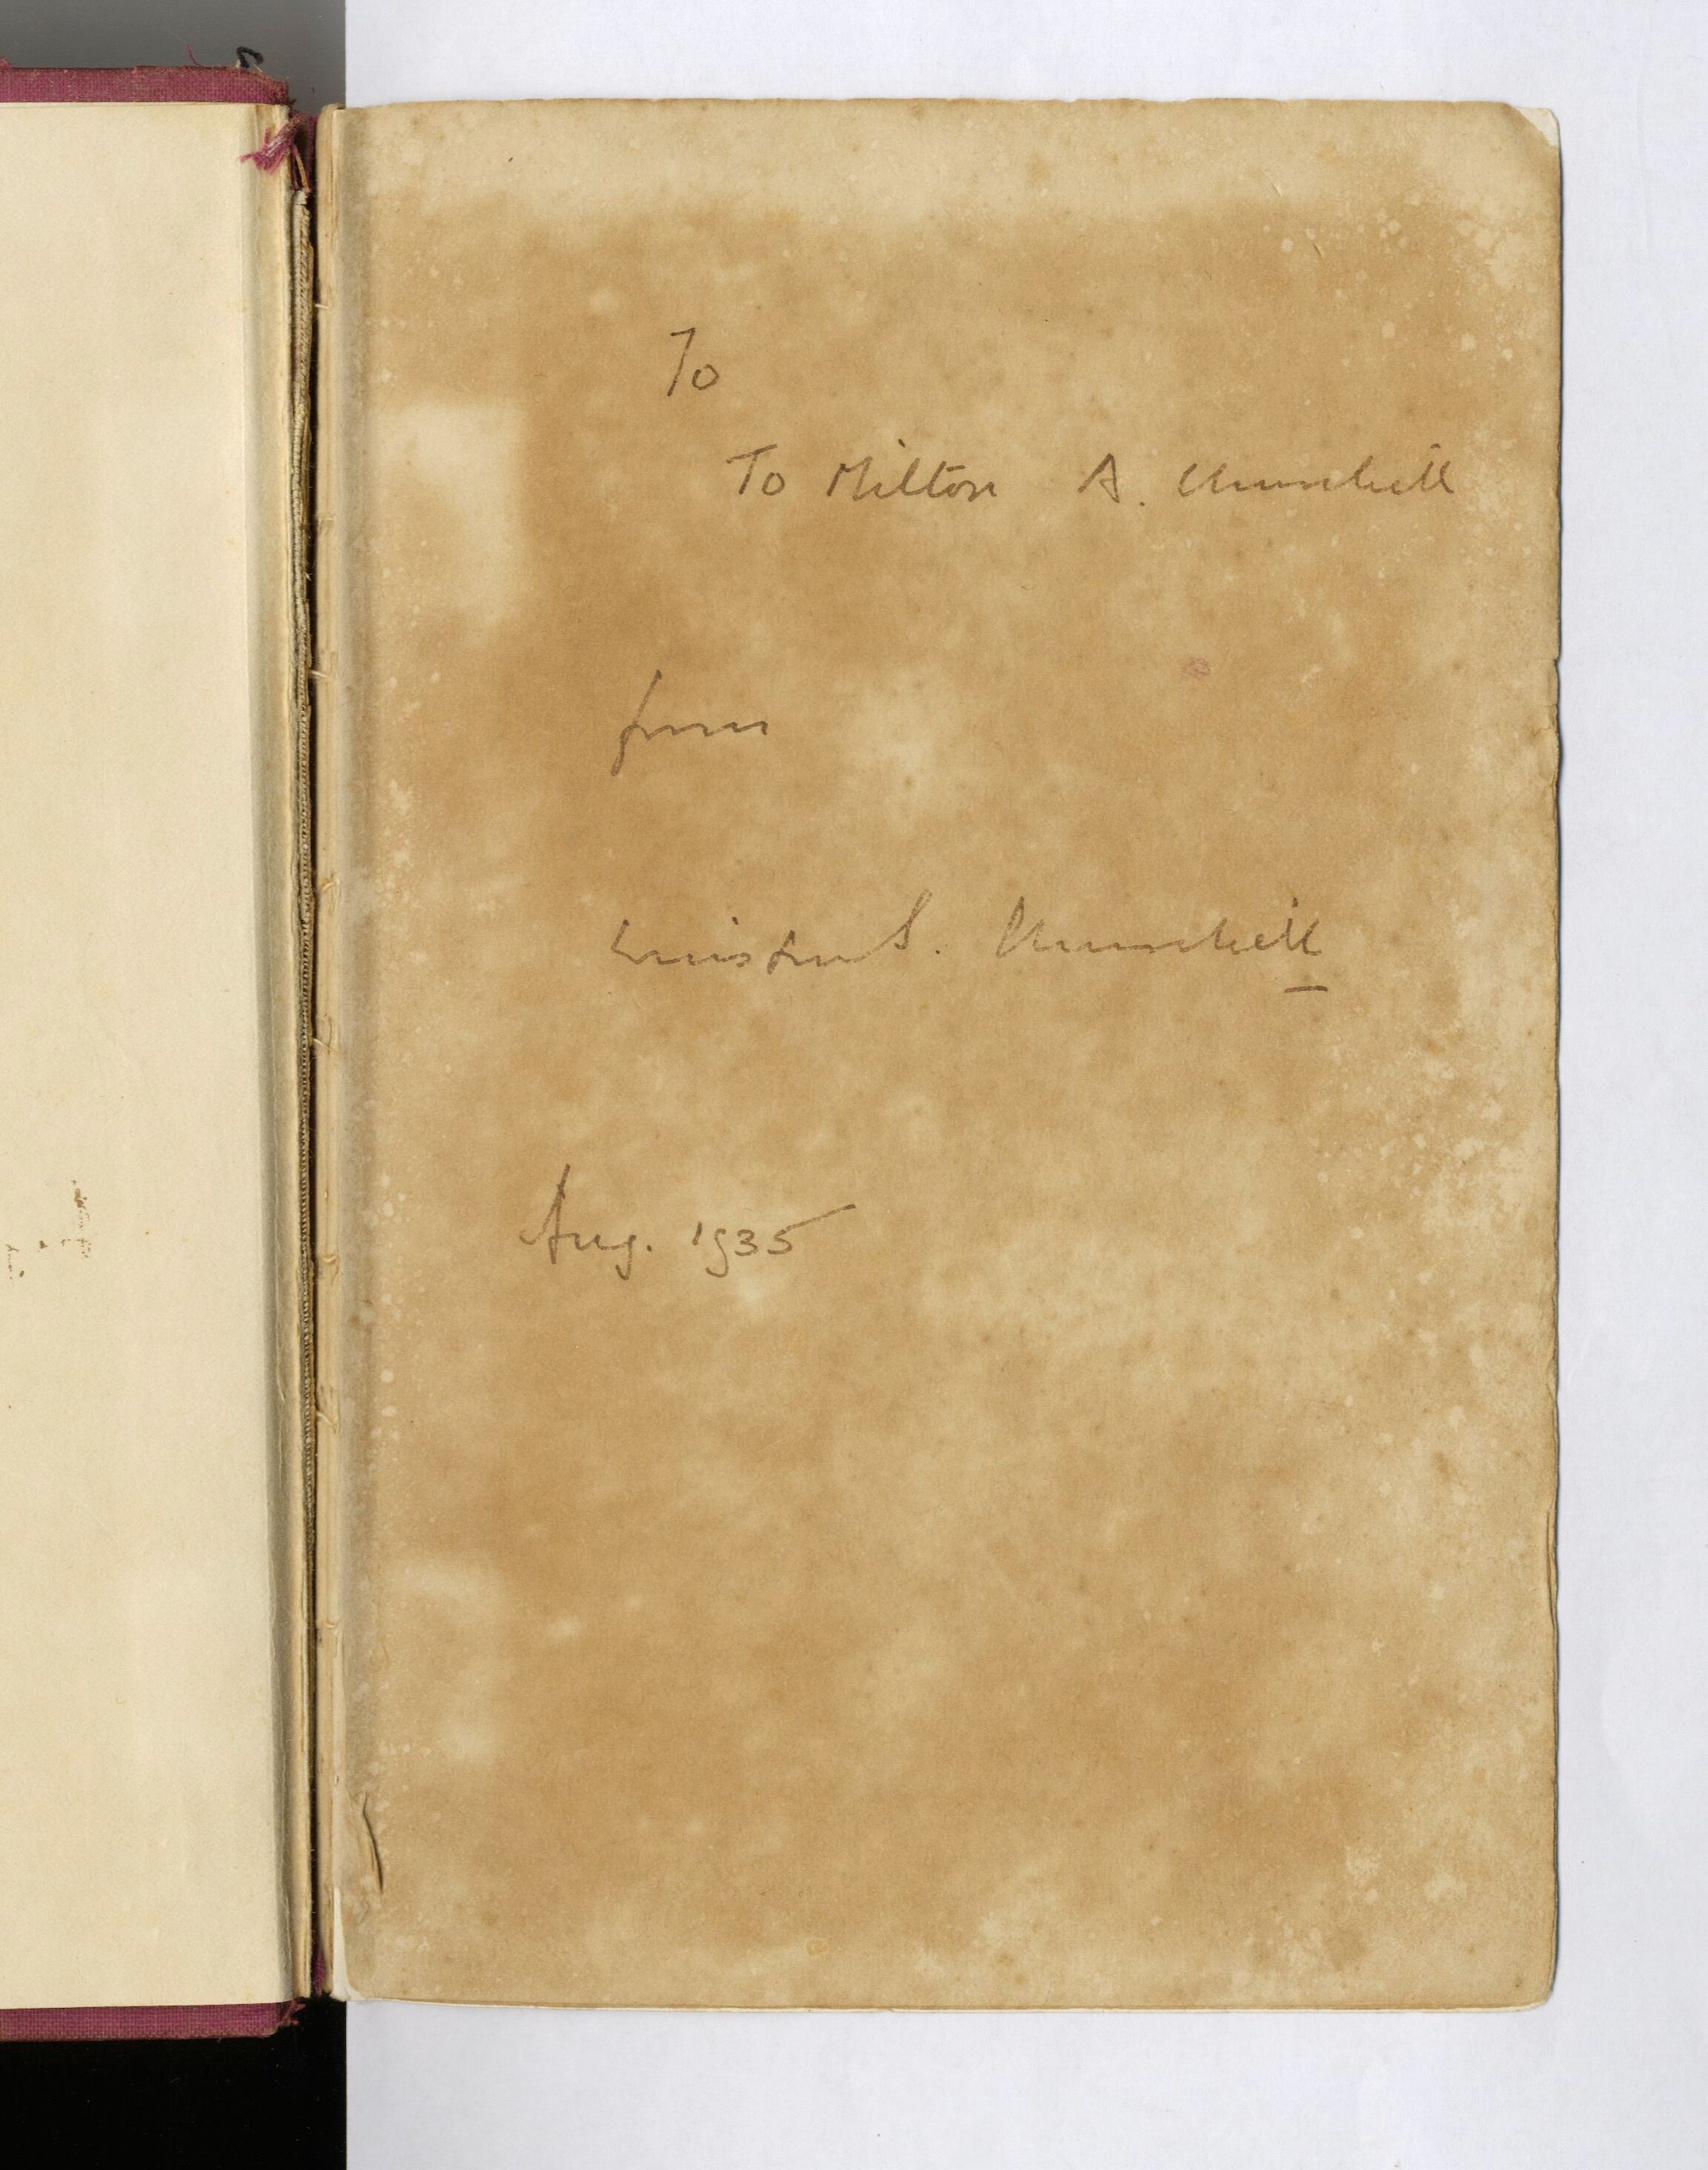 To
To Milton A. Churchill
from
Winston S. Churchill
Aug. 1935